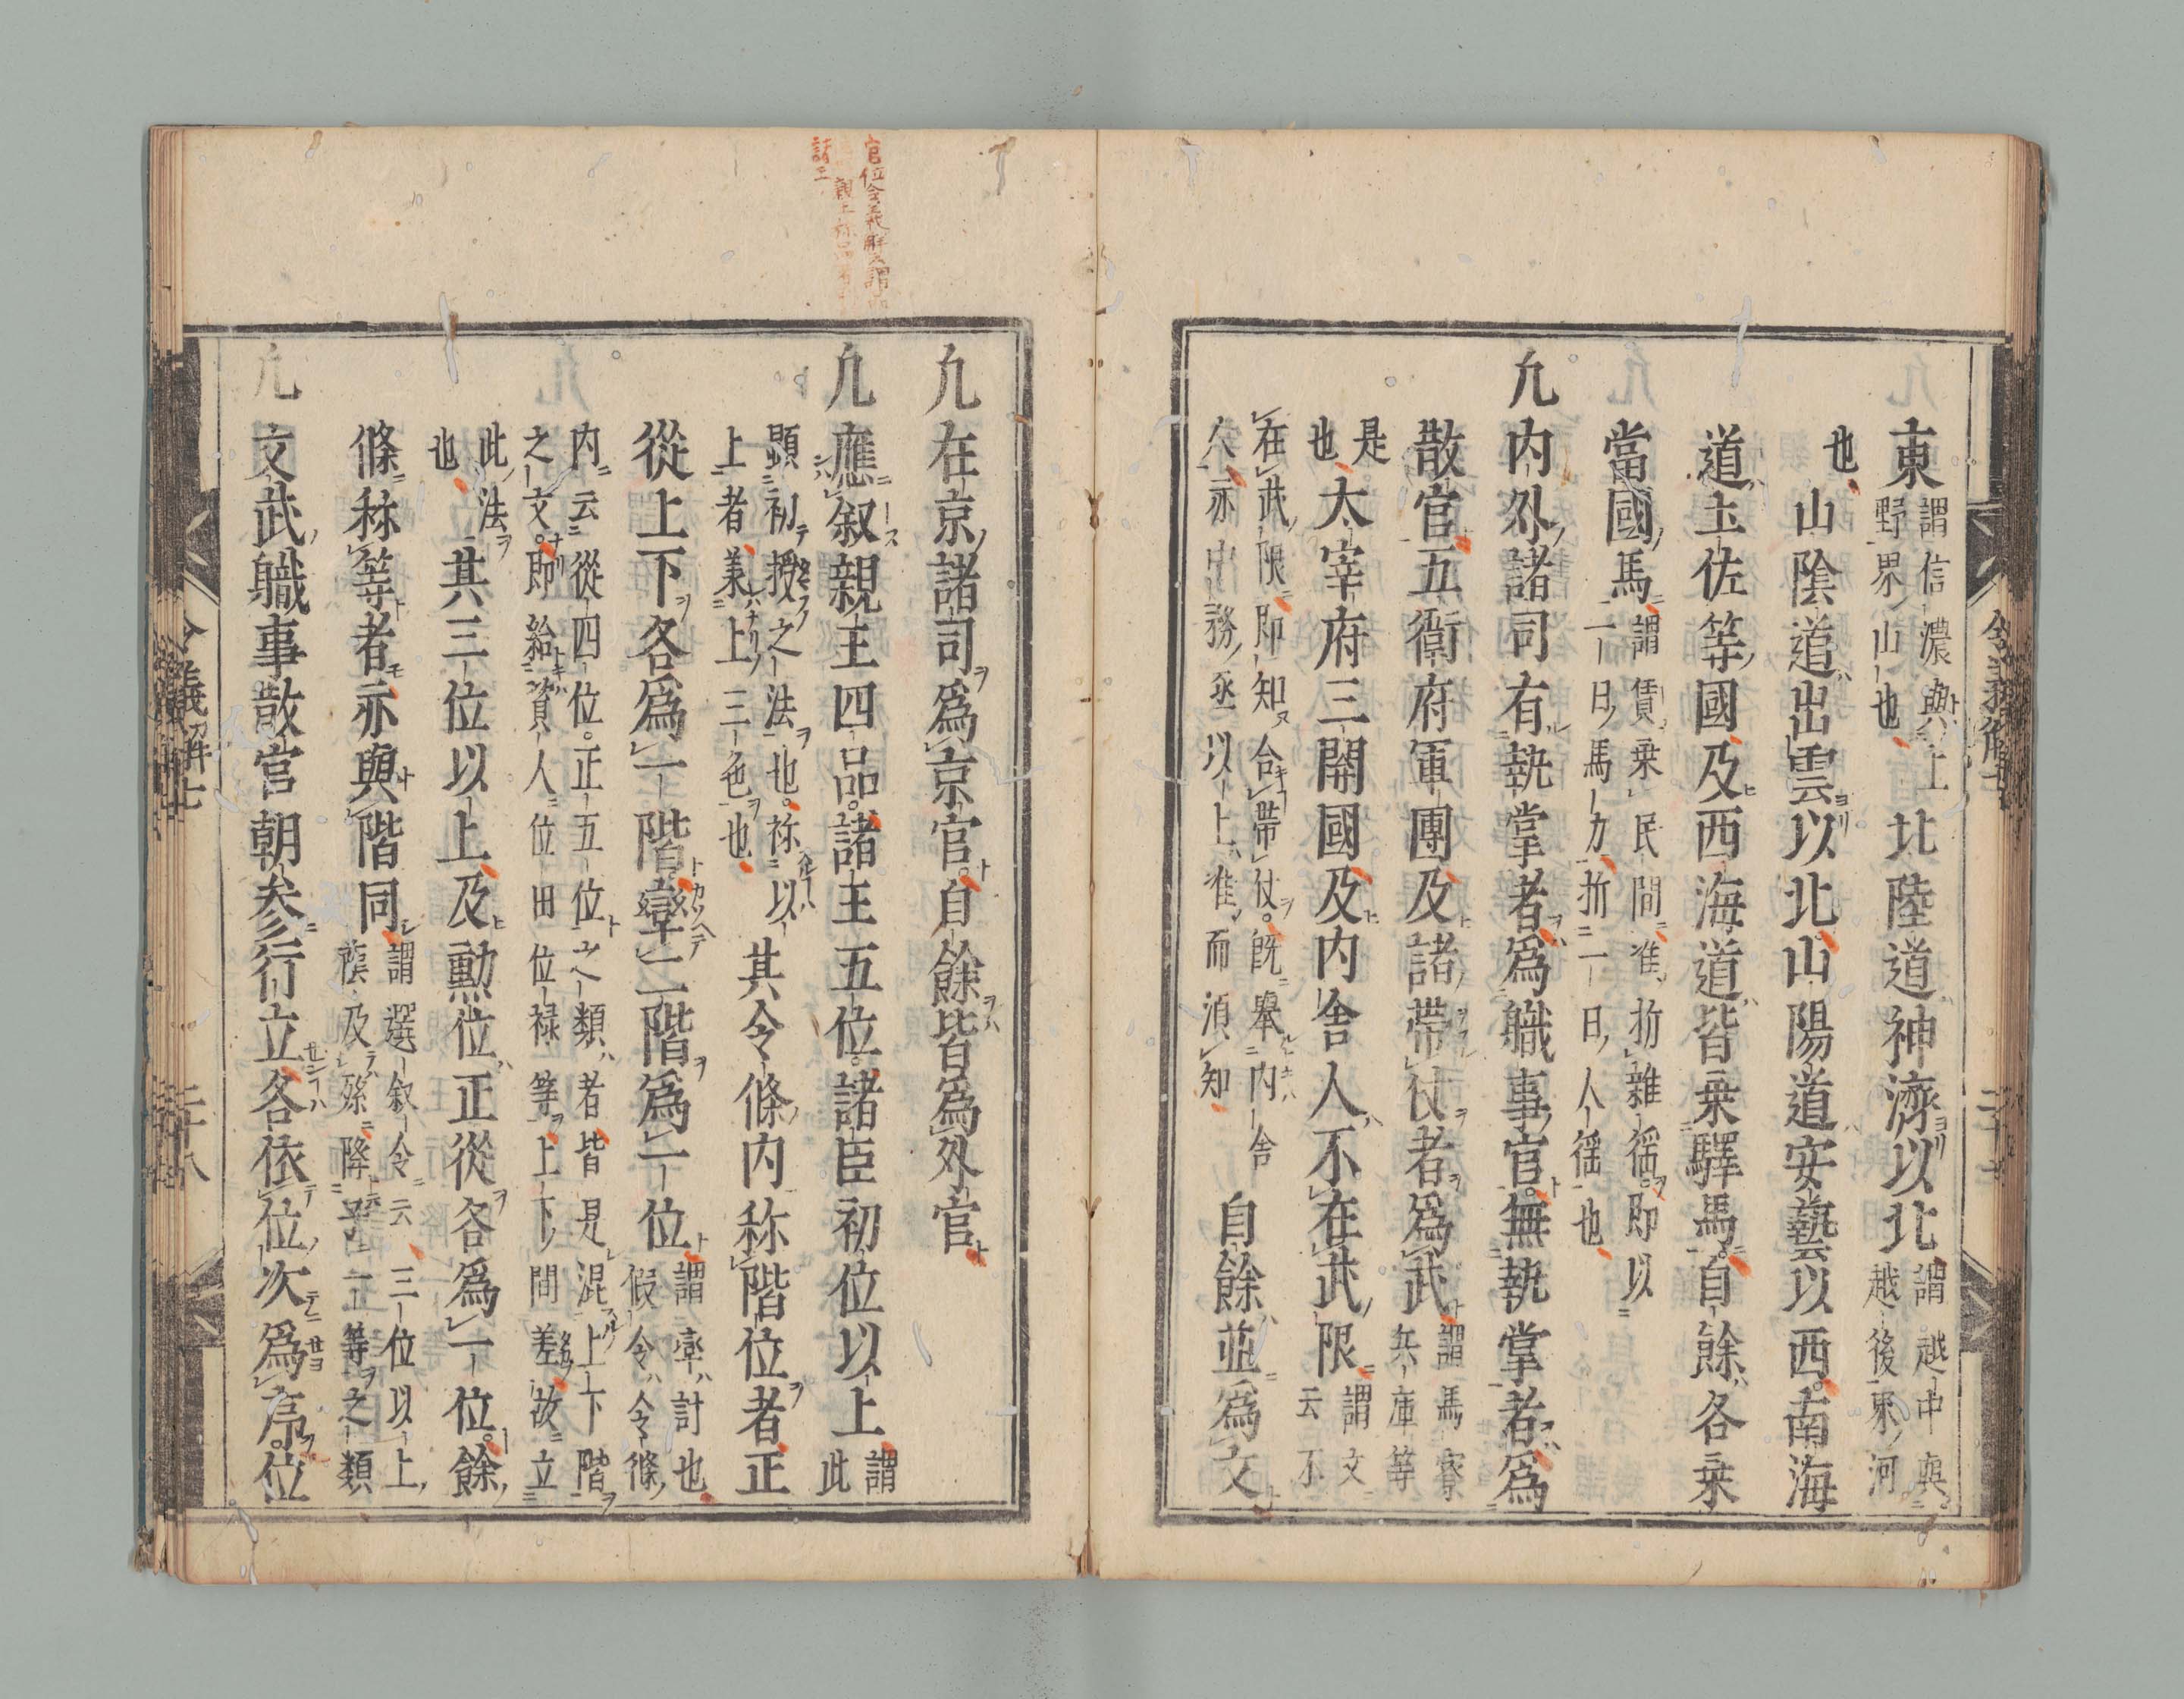 東謂信濃與上野界山也北陸道神濟以北謂越中與越後界河
也山陰道出雲以北山陽道安藝以西南海
道土佐等國及西海道皆乗驛馬自餘各乗
當國馬謂賃乗民間准折雜徭即以一日馬力折二日人徭也
凢内外諸司有執掌者爲職事官無執掌者爲
散官五衛府軍團及諸帶仗者爲武謂馬寮兵庫等
是也大宰府三關國及内舎人不在武限謂文云不
在武限即知合帶仗既舉内舎人亦中務丞以上准而須知自餘並爲文
凢在京諸司爲京官自餘皆爲外官
凢應叙親王四品諸王五位諸臣初位以上謂此
顕初授之法也称以上者兼上三色也其令條内称階位者正
從上下各爲一階率二階爲一位謂率計也假令令條
内云從四位正五位之類者皆是混上下階之文即給資人位田位禄等上下間差故立
此法也其三位以上及勲位正從各爲一位餘
條称等者亦與階同謂選叙令云三位以上蔭及孫降子一等之類
凢文武職事散官朝参行立各依位次爲序位
官位令義解謂
令義解七
二十八